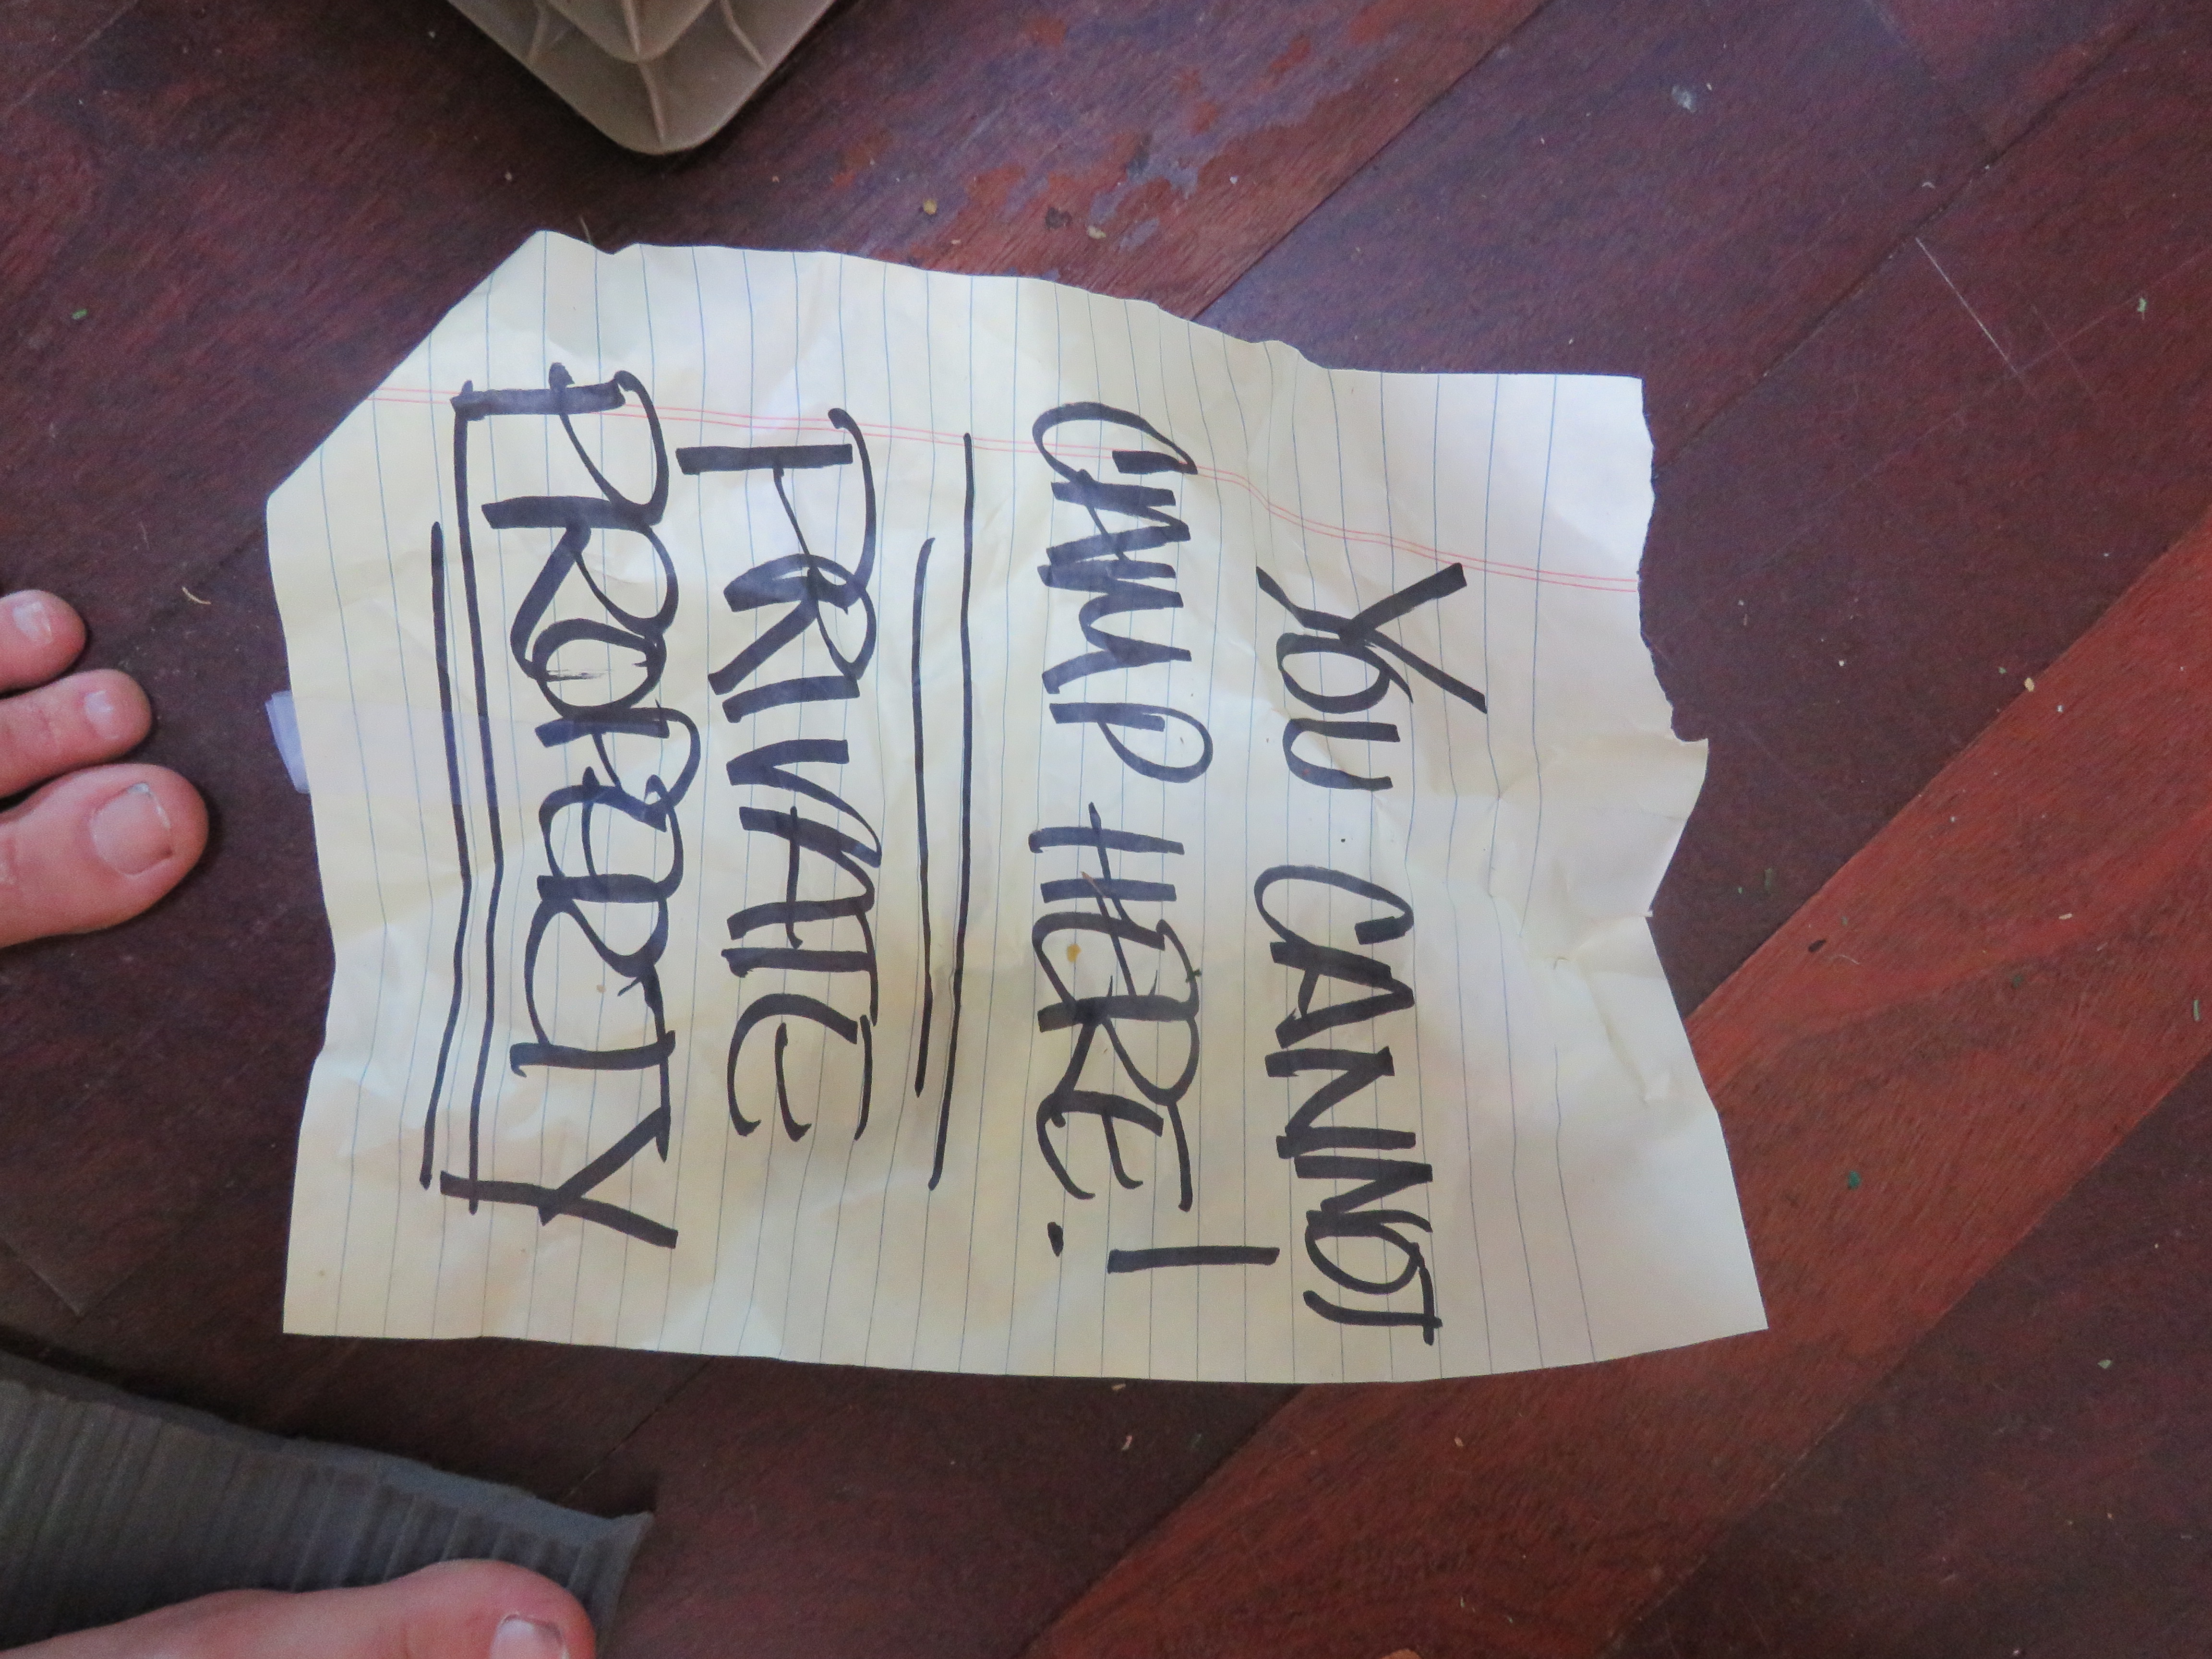 YOU CANNOT
CAMP HERE!
PRIVATE
PROPERTY